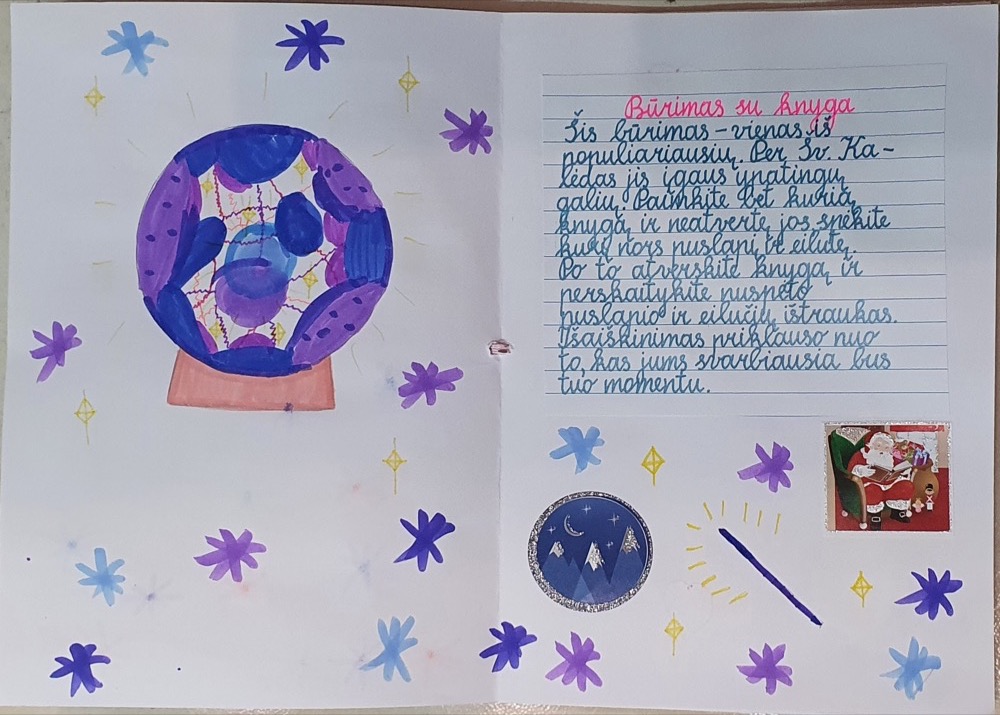 Būrimas su knyga
Šis būrimas - vienas iš
populiariausių. Per Šv. Ka-
lėdas jis įgaus ypatingų
galių. Paimkite bet kurią
knygą ir neatvertę jos spėkite
kurį nors puslapį ir eilutę.
Po to atverskite knygą ir
perskaitykite nuspėto
puslapio ir eilučių ištraukas.
Išaiškinimas priklauso nuo
to, kas jums svarbiausia bus
tuo momentu.